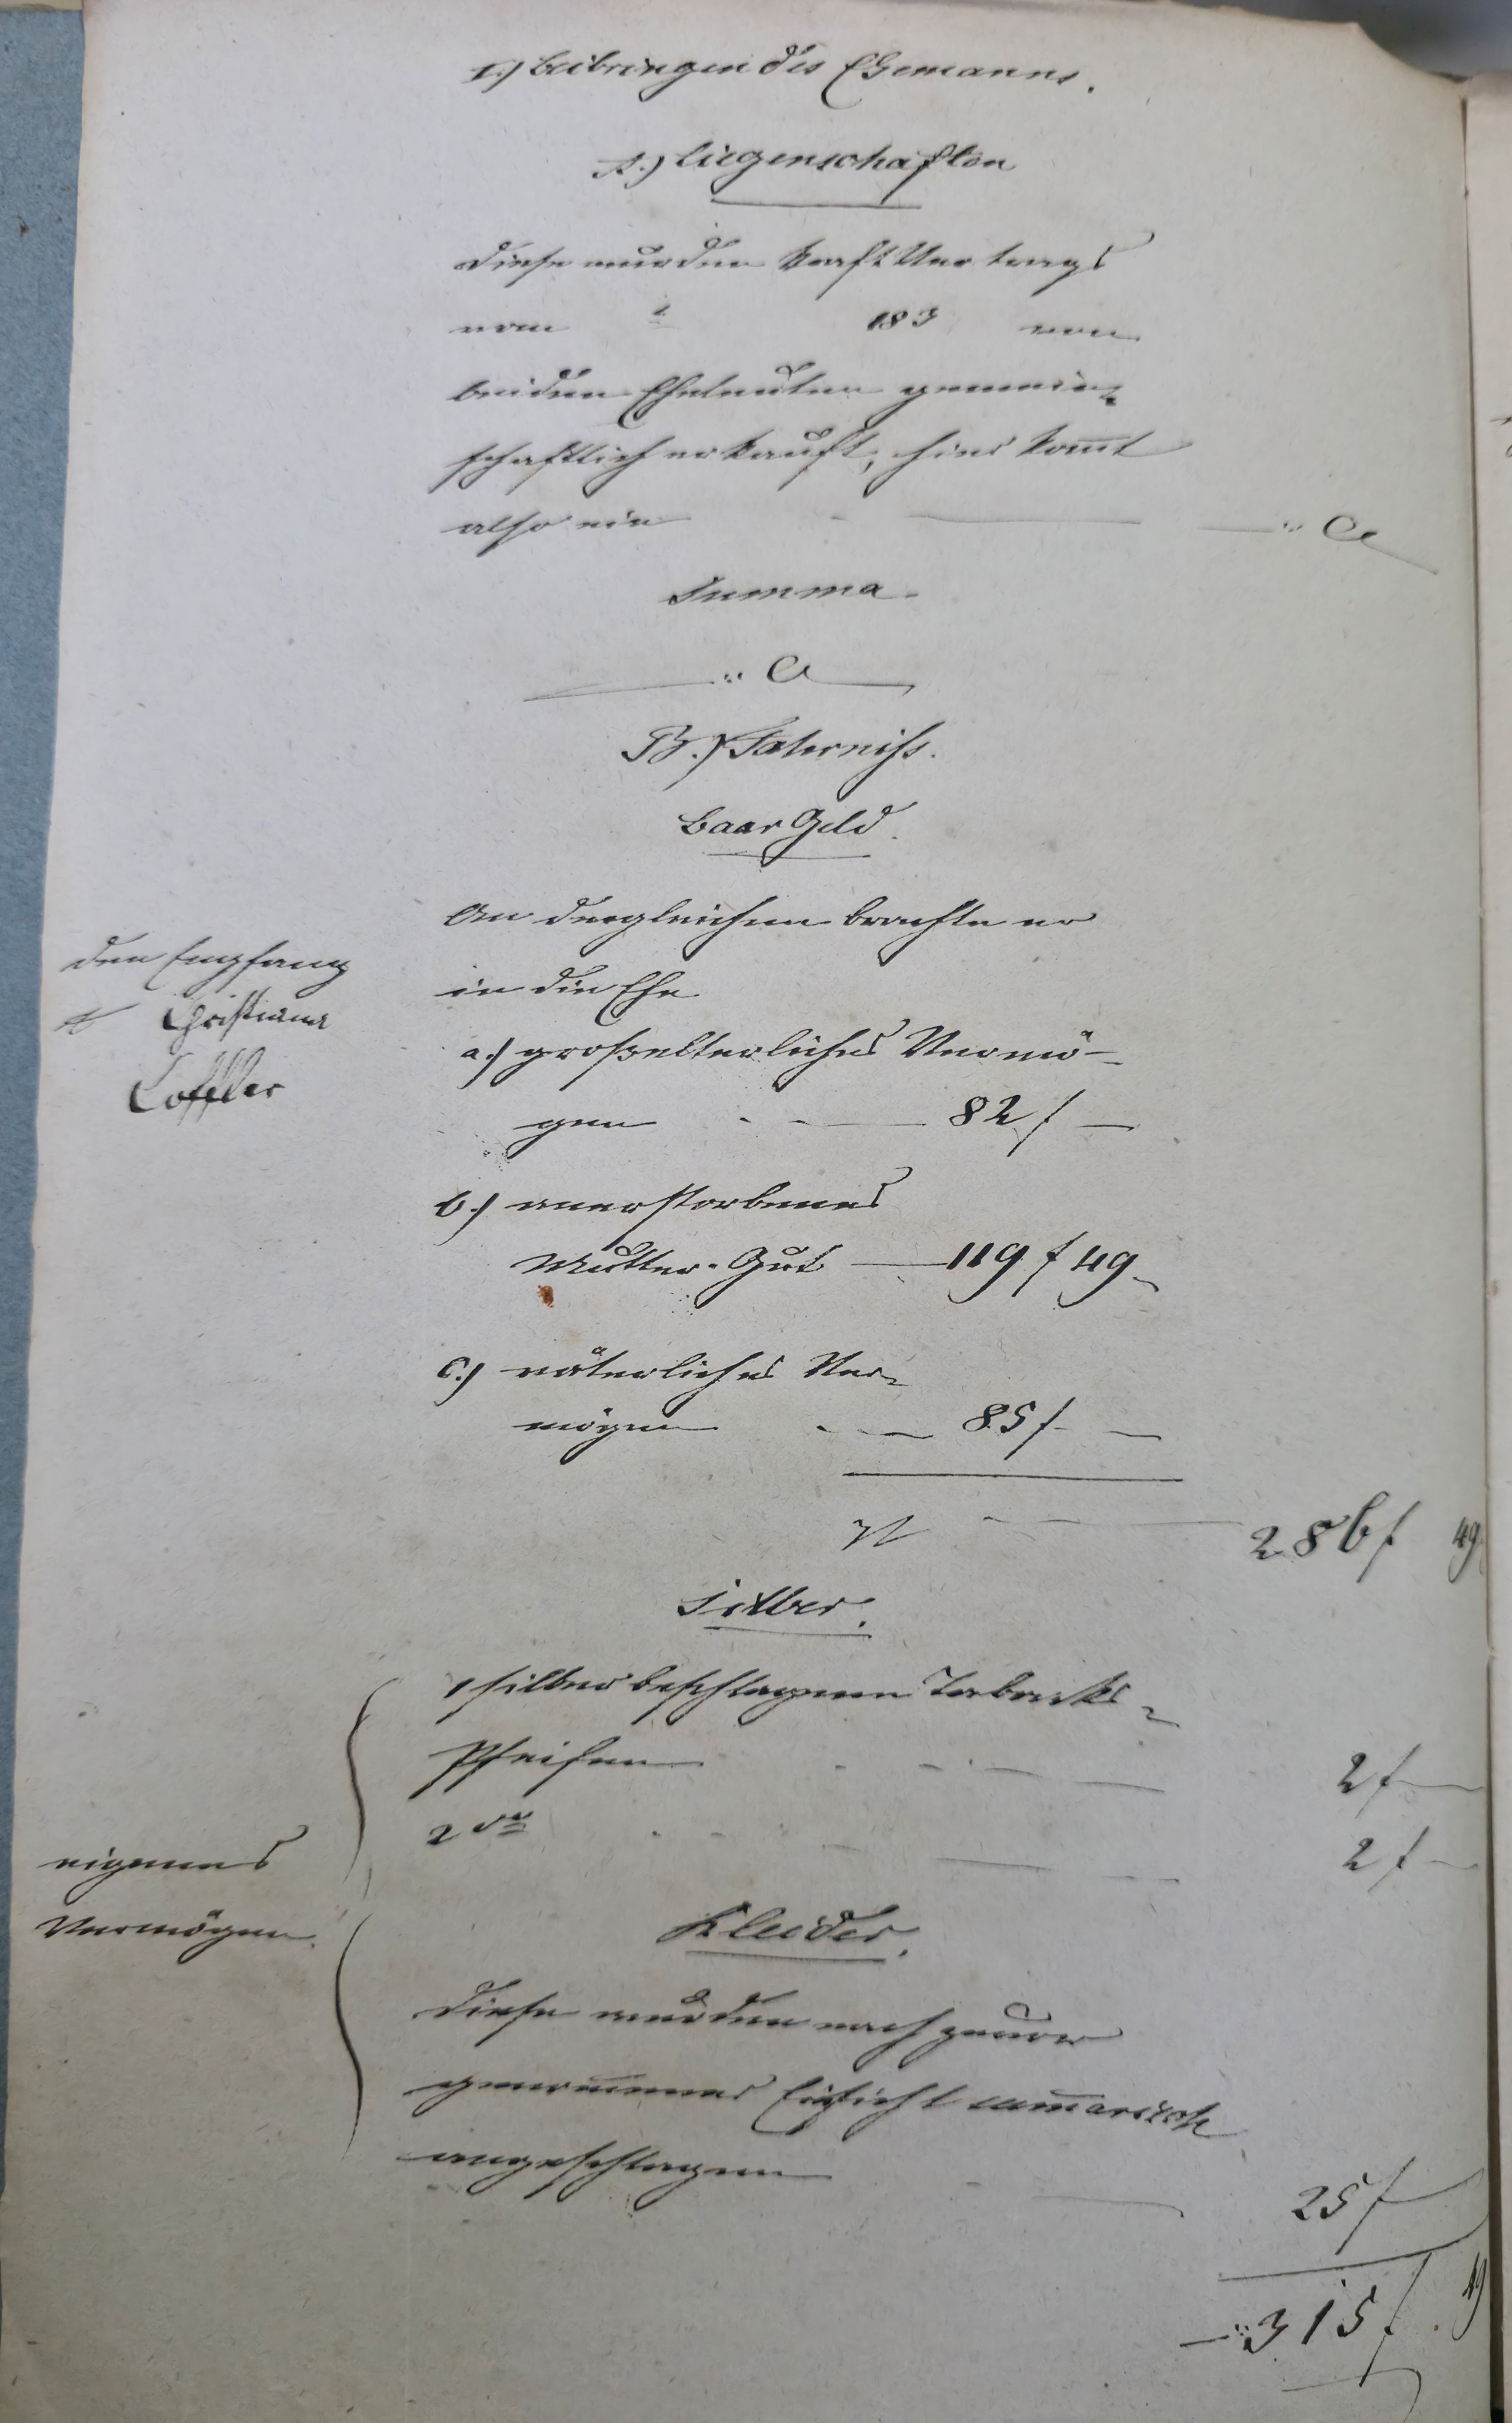 I.) Beibringen des Ehemanns.
A.) Liegenschaften
Diese wurden kraft Vertrags
vom 183 von
beiden Eheleuten gemein-
schaftlich erkauft, hier kom̄t
also ein
Summa.
B.) Fahrniß.
Baar Geld.
An dergleichen brachte er
in die Ehe
den Empfang
Christiana
Loffler
a.) großelterliches Vermö-
gen 82 f —
b.) anerstorbenes
Mutter-Gut — 119 f 49
c.) väterliches Ver-
mögen 85 f —
286 f 49
Silber.
1 silber beschlagene Tabacks-
Pfeifen 2 f —
2 do 2 f —
eigenes
Vermögen.
Kleider.
Diese wurden nach zuvor
genom̄ener Einsicht sum̄arisch
angeschlagen
25 f
315 f. 49